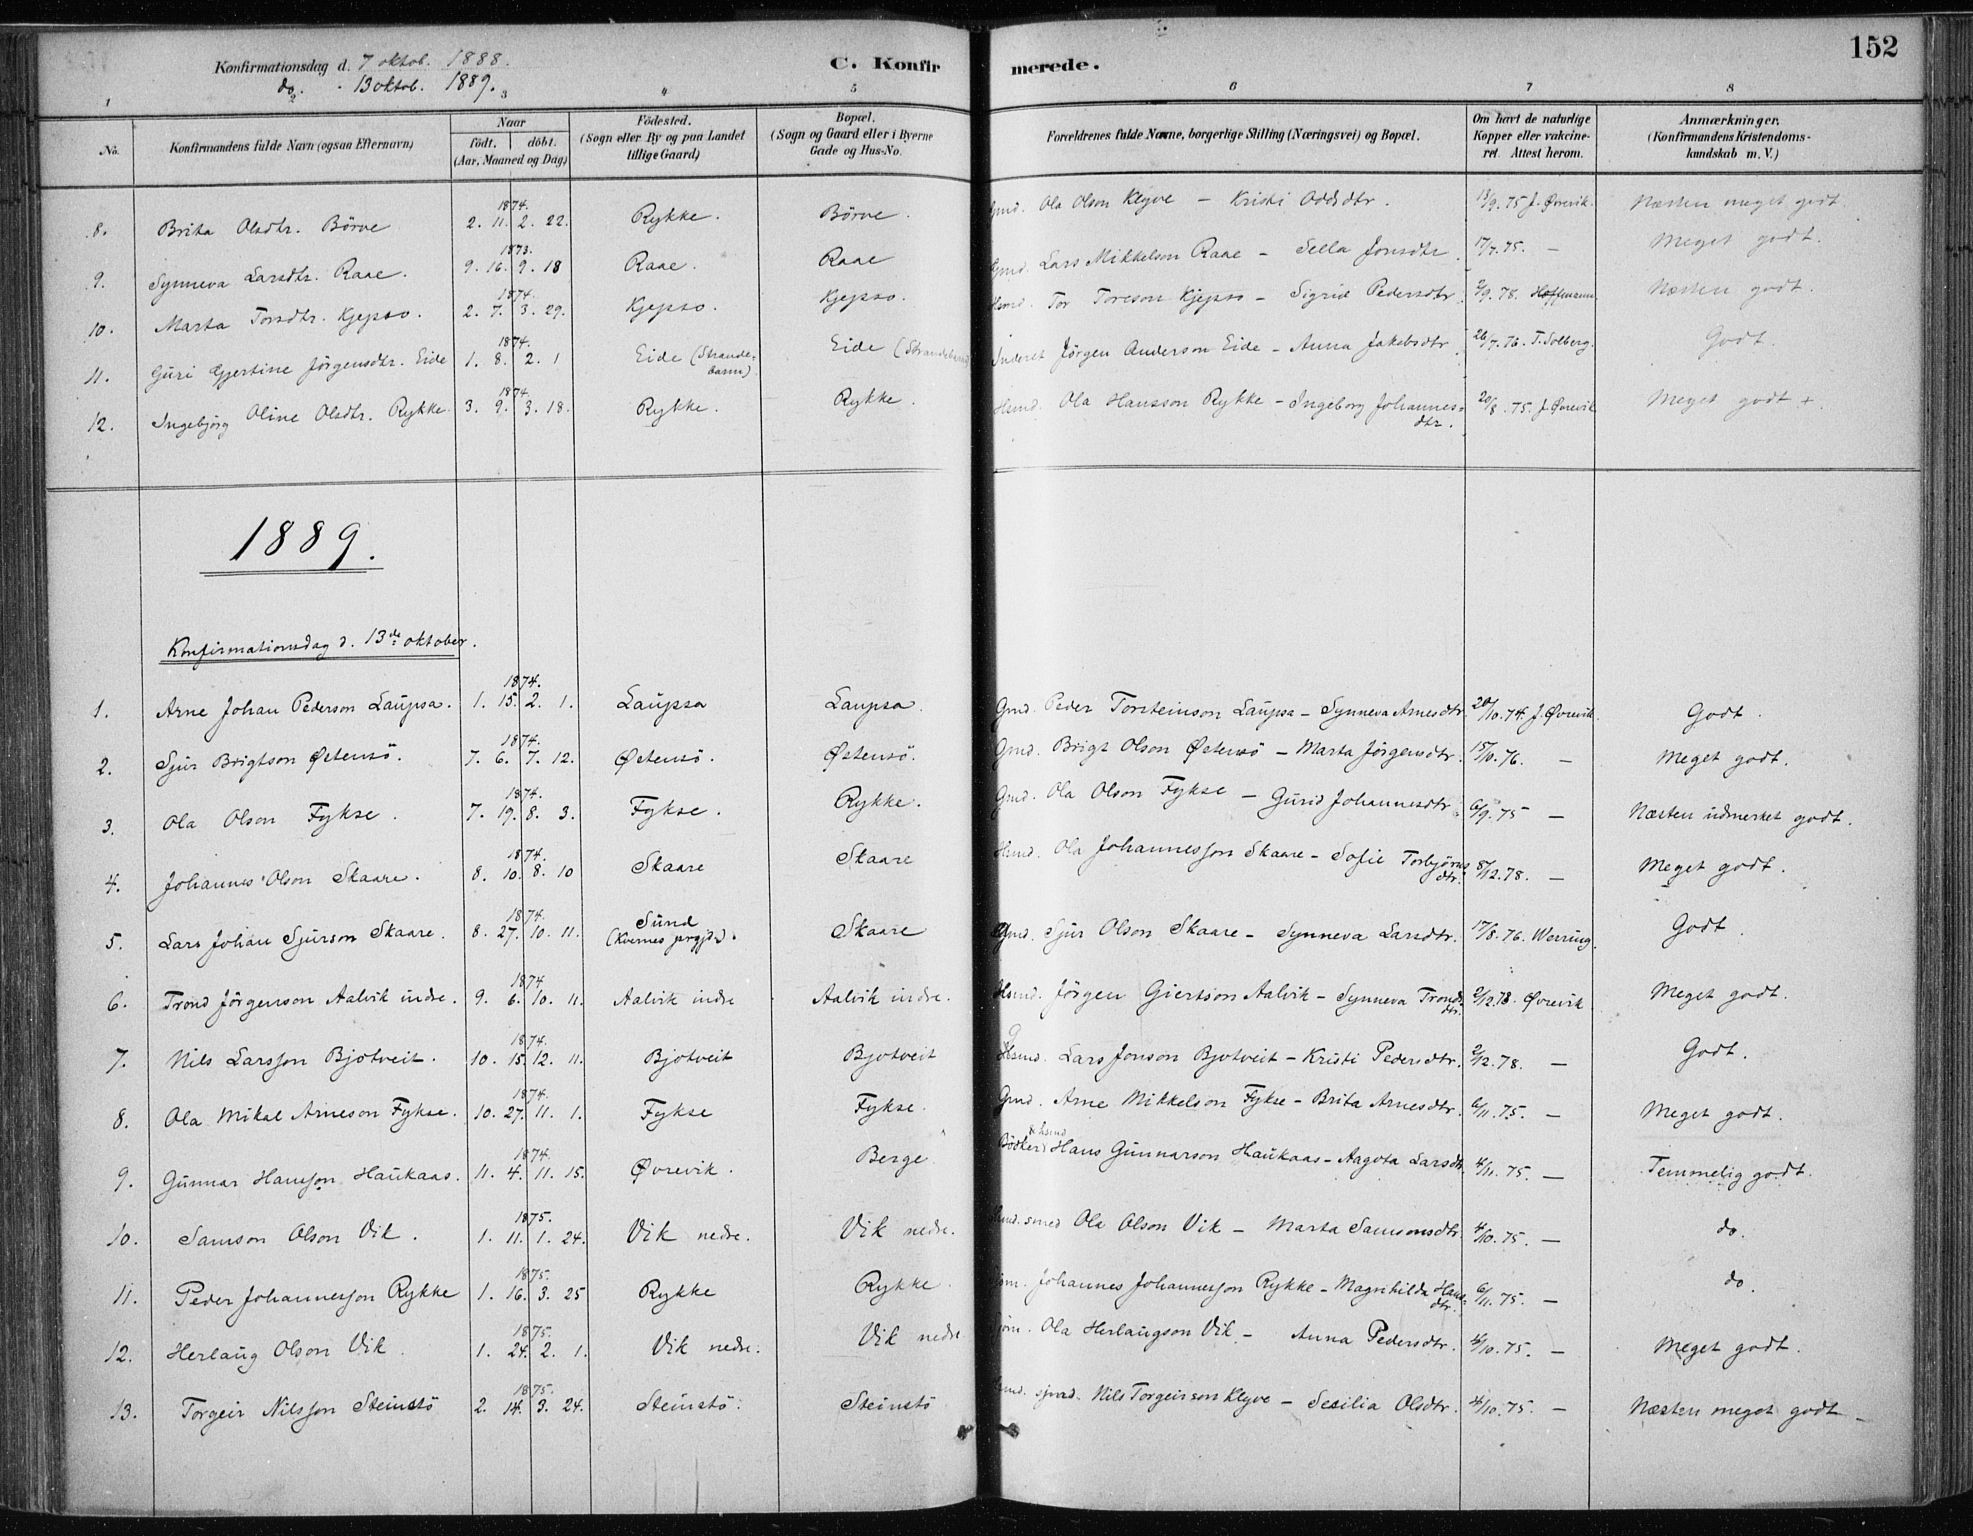 152
Konfirmationsdag d. 7 oktob. 1888.
do. - 13 oktob. 1889.
C. Konfirmerede.
1 3 4 5 6 7 8
No. | Konfirmandens fulde Navn (ogsaa Efternavn) | Naar født. døbt. (Aar, Maaned og Dag) | Födested. (Sogn eller By og paa Landet tillige Gaard) | Bopæl. (Sogn og Gaard eller i Byerne Gade og Hus-No. | Forældrenes fulde Navne, borgerlige Stilling (Næringsvei) og Bopæl. | Om havt de naturlige Kopper eller vakcineret. Attest herom. | Anmærkninger. (Konfirmandens Kristendomskundskab m. V.)
8. Brita Olsdtr. Börve | 1874. 2. 11. 2. 22. | Rykke. | Börve. | Gmd. Ola Olson Klyve - Kristi Oddsdtr. | 13/9. 75 J. Øvrevik. | Næsten meget godt.
9. Synneva Larsdtr. Raae. | 1873. 9. 16. 9. 18 | Raae. | Raae | Gmd. Lars Mikkelson Raae - Sella Jonsdtr. | 17/7. 75. - | Meget godt.
10. Marta Torsdtr. Kjepso. | 1874. 2. 7. 3. 29. | Kjepso. | Kjepso. | Hsmd. Tor Toreson Kjepso - Sigrid Pedersdtr. | 2/9. 78. Hoffmann | Næsten godt.
11. Guri Gjertine Jörgensdtr. Eide | 1874. 1. 8. 2. 1 | Eide (Strandebarm) | Eide (Strandebarm) | Inderst Jörgen Anderson Eide - Anna Jakobsdtr. | 26/7. 76. T. Solberg. | Godt
12. Ingebjörg Oline Olsdtr. Rykke. | 1874. 3. 9. 3. 18. | Rykke. | Rykke. | Hsmd. Ola Hansson Rykke - Ingeborg Johannesdtr. | 20/8. 75. J. Øvrevik | Meget godt +.
1889.
Konfirmationsdag d. 13de oktober.
1. Arne Johan Pederson Laupsa. | 1874. 1. 15. 2. 1. | Laupsa | Laupsa. | Gmd. Peder Torsteinson Laupsa - Synneva Arnesdtr. | 20/10. 74. J. Øvrevik. | Godt.
2. Sjur Brigtson Østensö. | 1874. 7. 6. 7. 12. | Østensö. | Østensö. | Gmd. Brigt Olson Østensö - Marta Jörgensdtr. | 15/10. 76. - | Meget godt.
3. Ola Olson Fykse. | 1874. 7. 19. 8. 3. | Fykse. | Rykke. | Gmd. Ola Olson Fykse - Gurid Johannesdtr. | 6/9. 75 - | Næsten udmerket godt.
4. Johannes Olson Skaare. | 1874. 8. 10. 8. 10 | Skaare | Skaare | Hsmd. Ola Johannesson Skaare - Sofie Torbjörnsdtr. | 8/12. 78. - | Meget godt.
5. Lars Johan Sjurson Skaare. | 1874. 8. 27. 10. 11. | Sund (Kvernes prgjd.). | Skaare | Gmd. Sjur Olson Skaare - Synneva Larsdtr. | 17/8. 76. Werring. | Godt.
6. Trond Jörgenson Aalvik indre. | 1874 9. 6. 10. 11. | Aalvik indre | Aalvik indre. | Hsmd. Jörgen Giertson Aalvik - Synneva Trondsdtr. | 2/12. 78. Øvrevik | Meget godt.
7. Nils Larsson Bjotveit. | 1874. 10. 15. 12. 11. | Bjotveit | Bjotveit | Lars Jonson Bjotveit - Kristi Pedersdtr. | 2/12. 78. - | Godt.
8. Ola Mikal Arneson Fykse. | 1874. 10. 27. 11. 1. | Fykse | Fykse. | Gmd. Arne Mikkelson Fykse - Brita Arnesdtr. | 6/11. 75. - | Meget godt.
9. Gunnar Hansson Haukaas. | 1874. 11. 4. 11. 15. | Øvrevik. | Berge | Bödker & hsmd Hans Gunnarson Haukaas - Aagota Larsdtr. | 4/11. 75. - | Temmelig godt.
10. Samson Olson Vik. | 1875. 1. 11. 1. 24. | Vik nedre. | Vik nedre. | smed Ola Olson Vik - Marta Samsonsdtr. | 4/10. 75. - | do.
11. Peder Johannesson Rykke | 1875. 1. 16. 3. 25 | Rykke | Rykke. | Johannes Johannesson Rykke - Magnhilda Hansdtr. | 6/11. 75. - | do.
12. Herlaug Olson Vik. | 1875. 1. 24. 2. 1. | Vik nedre. | Vik nedre | Ola Herlaugson Vik. - Anna Pedersdtr. | 4/10. 75. - | Meget godt.
13. Torgeir Nilsson Steinstö | 1875. 2. 14. 3. 24. | Steinstö. | Steinstö | Nils Torgeirson Klyve - Sesilia Olsdtr. | 4/10. 75. - | Næsten meget godt -